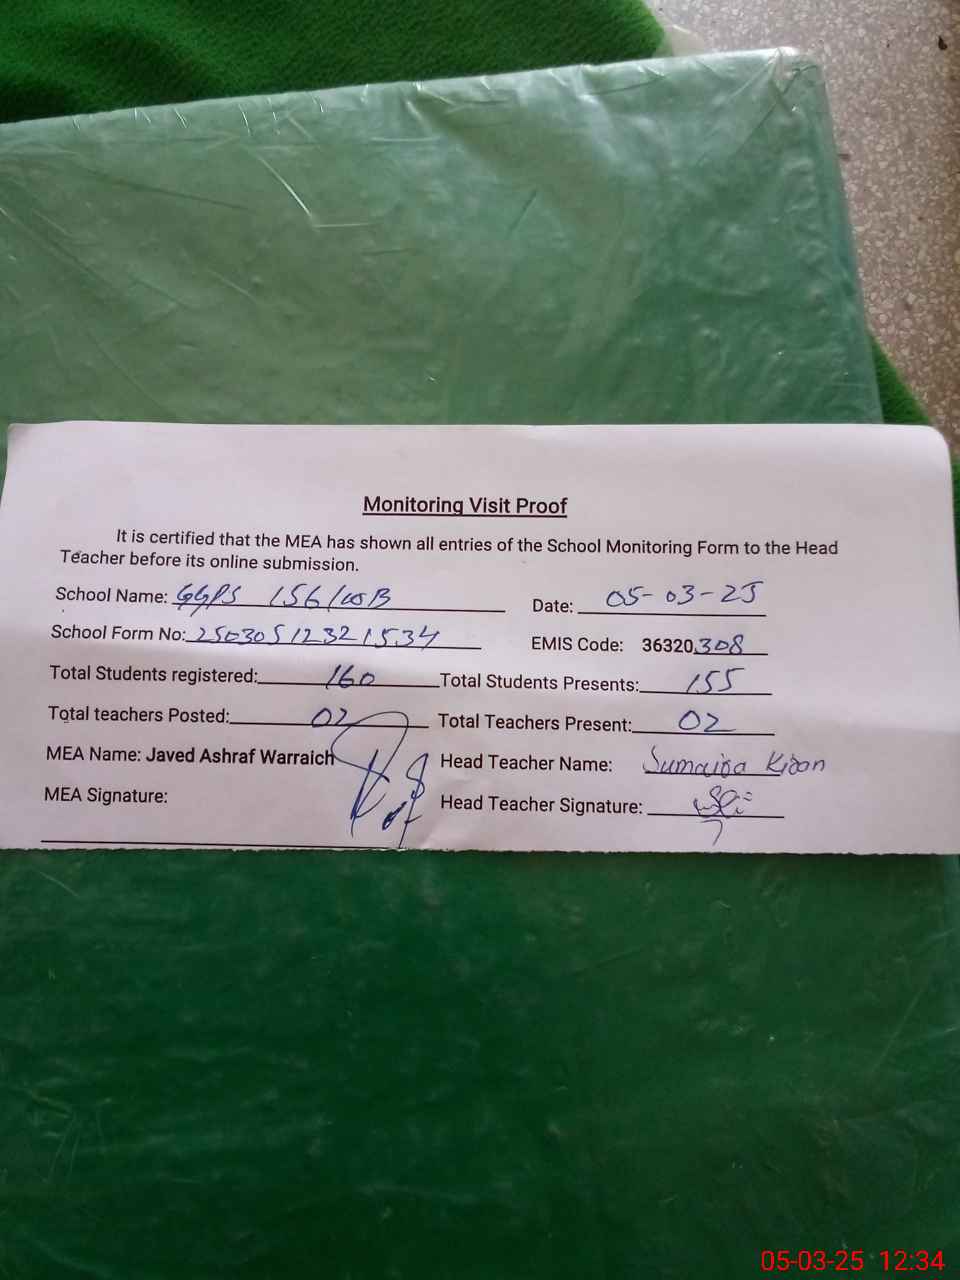 Monitoring Visit Proof
It is certified that the MEA has shown all entries of the School Monitoring Form to the Head
Teacher before its online submission.
School Name: GGPS 156/WB Date: 05-03-25
School Form No: 25030512321534 EMIS Code: 36320308
Total Students registered: 160 Total Students Presents: 155
Total teachers Posted: 02 Total Teachers Present: 02
MEA Name: Javed Ashraf Warraich Head Teacher Name: Sumaira Kiran
MEA Signature: Head Teacher Signature:
05-03-25 12:34